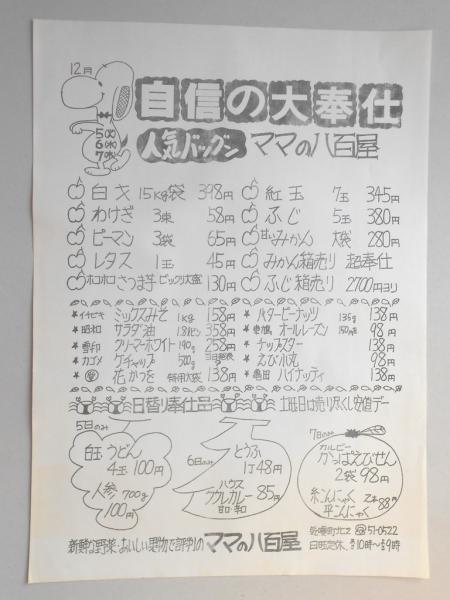 12月
5(火)
6(水)
7(木)
自信の大奉仕
人気バツグン ママの八百屋
白才 15kg袋 398円
わけぎ 3束 58円
ピーマン 3袋 65円
レタス 1玉 45円
ホロホロ さつま芋 ビックリ大袋 130円
紅玉 7玉 345円
ふじ 5玉 380円
甘い みかん 大袋 280円
みかん箱売り 超奉仕
ふじ箱売り 2700円ヨリ
イチビキ ミックスみそ 1kg 158円
昭和 サラダ油 1.8lビン 358円
雪印 クリーマーホワイト 190g 258円
カゴメ ケチャップ 500g 138円
花かつを 特用大袋 138円
バターピーナッツ 135g 138円
オールレーズン 98円
チップスター 138円
えび小丸 98円
亀田 ハイナッティ 138円
日替り奉仕品
土曜日は売り尽くし安値デー
5日のみ
白玉うどん
4玉 100円
人参 700g
100円
6日のみ
とうふ
1丁 48円
ハウス
ププルカレー 85円
甘・和
7日のみ
カルビー
かっぱえびせん
2袋 98円
糸こんにゃく
平こんにゃく 2ケ 88円
新鮮な野菜・おいしい果物で評判の ママの八百屋
☎51-0522
日曜定休 10時〜9時